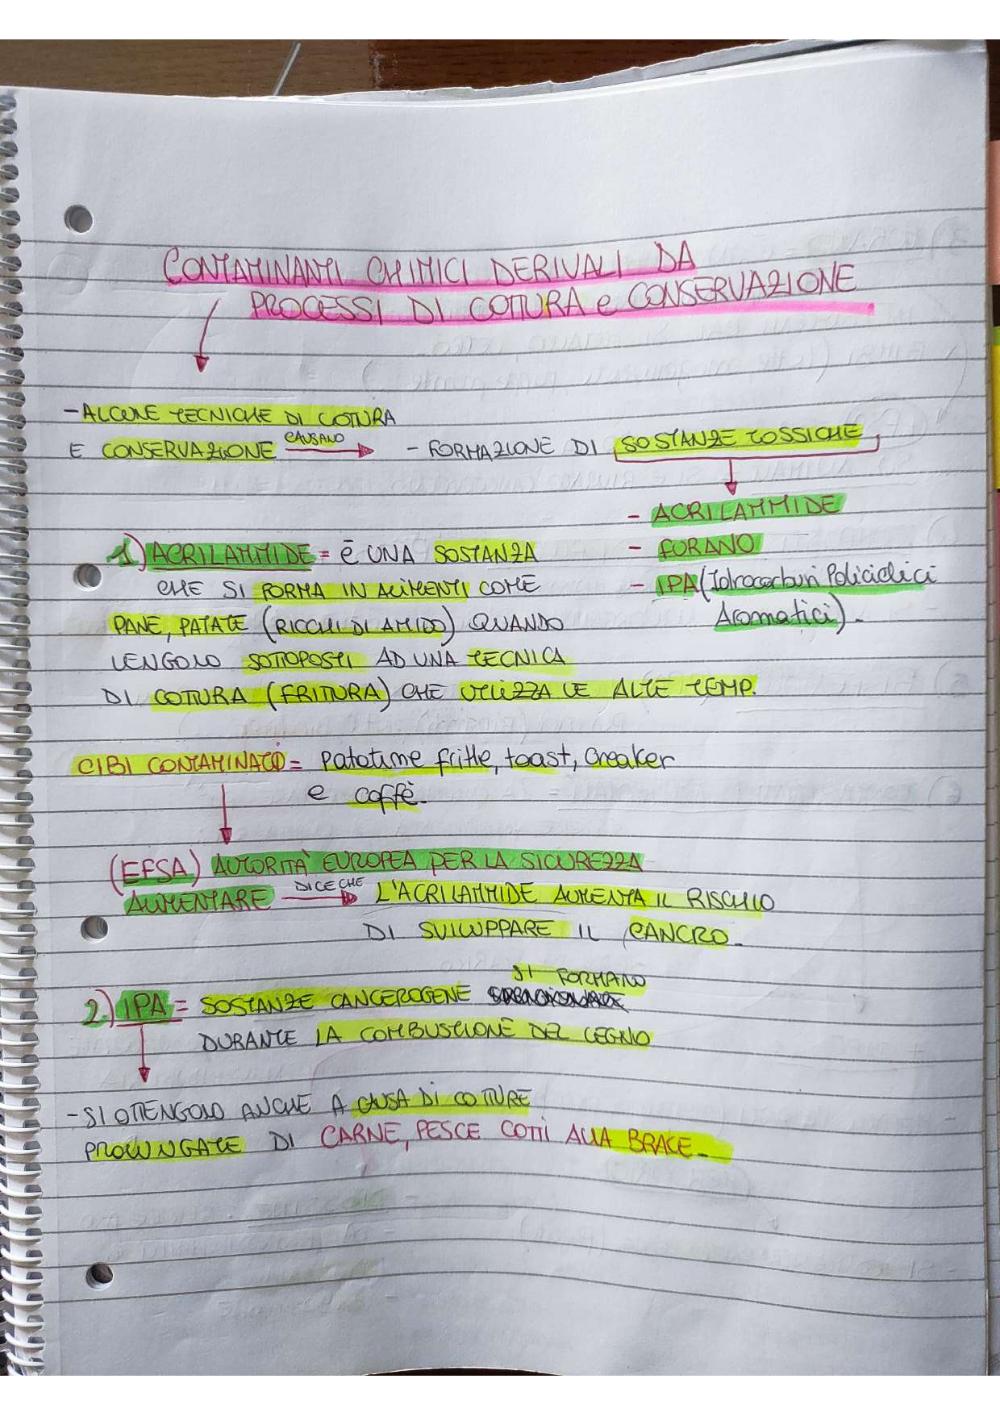 CONTAMINANTI CHIMICI DERIVALI DA
PROCESSI DI COTTURA e CONSERVAZIONE
- ALCUNE TECNICHE DI COTURA
E CONSERVAZIONE CAUSANO - FORMAZIONE DI SOSTANZE TOSSICHE
- ACRILAMMIDE
- FURANO
- IPA (Idrocarburi Policiclici
Aromatici).
1) ACRILAMMIDE = È UNA SOSTANZA
CHE SI FORMA IN ALIMENTI COME
PANE, PATATE (RICCHI DI AMIDO) QUANDO
VENGONO SOTTOPOSTI AD UNA TECNICA
DI COTTURA (FRITURA) CHE UTILIZZA LE ALTE TEMP.
CIBI CONTAMINATO = Patatime fritte, toast, Creaker
e caffè.
(EFSA) AUTORITA' EUROPEA PER LA SICUREZZA
ALIMENTARE DICE CHE L'ACRILAMMIDE AUMENTA IL RISCHIO
DI SVILUPPARE IL CANCRO.
2) IPA = SOSTANZE CANCEROGENE SI FORMANO
DURANTE LA COMBUSTIONE DEL LEGNO
- SI OTTENGONO ANCHE A CAUSA DI COTTURE
PROLUNGATE DI CARNE, PESCE COTTI ALLA BRACE.